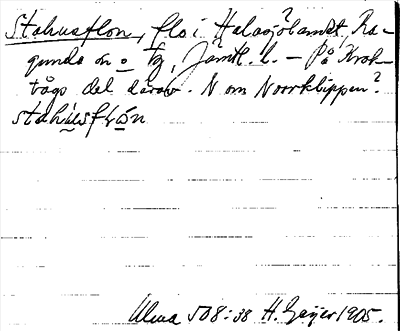 Stahusflon, flo i Halasjölandet?, Ra-
gunda sn o tg, Jämtl. l. – På Krok-
vågs del därav. N om Norrklippen?
stahusflón
Ulma 508:38 H. Geijer 1905.